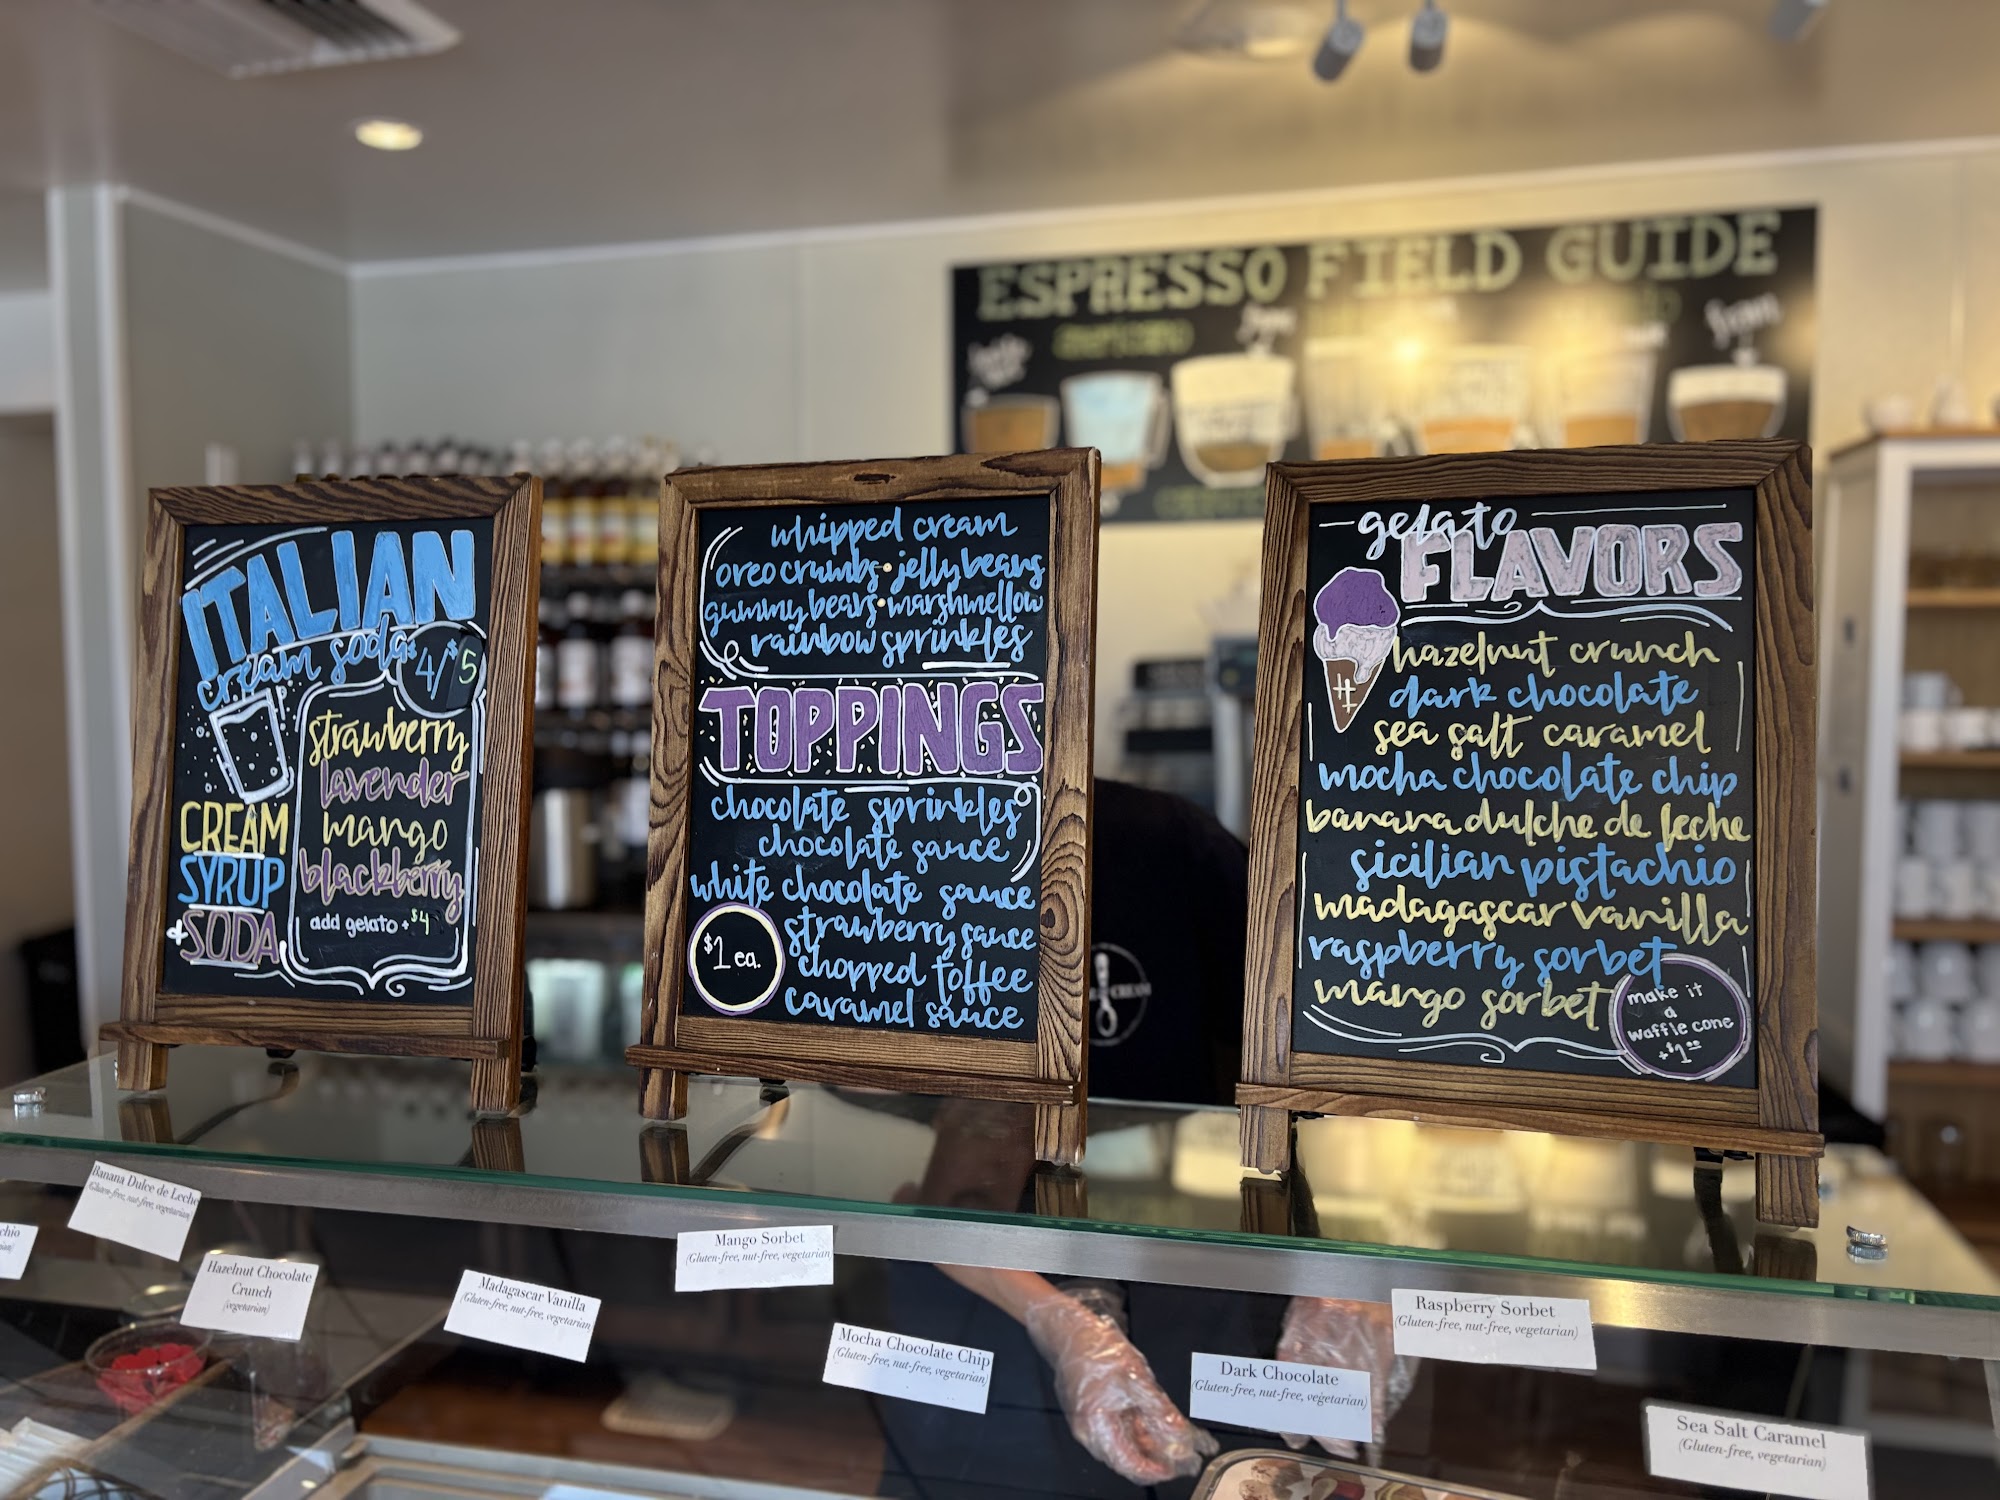 ESPRESSO FIELD GUIDE
americano
ITALIAN
cream soda
$4/$5
strawberry
lavender
mango
blackberry
add gelato + $4
CREAM
SYRUP
+ SODA
whipped cream
oreo crumbs • jelly beans
gummy bears • marshmellow
rainbow sprinkles
TOPPINGS
chocolate sprinkles
chocolate sauce
white chocolate sauce
strawberry sauce
chopped toffee
caramel sauce
$1 ea.
gelato
FLAVORS
hazelnut crunch
dark chocolate
sea salt caramel
mocha chocolate chip
banana dulche de leche
sicilian pistachio
madagascar vanilla
raspberry sorbet
mango sorbet
make it
a
waffle cone
+$1.00
CREAM
Banana Dulce de Leche
(Gluten-free, nut-free, vegetarian)
Hazelnut Chocolate
Crunch
(vegetarian)
Madagascar Vanilla
(Gluten-free, nut-free, vegetarian)
Mango Sorbet
(Gluten-free, nut-free, vegetarian)
Mocha Chocolate Chip
(Gluten-free, nut-free, vegetarian)
Dark Chocolate
(Gluten-free, nut-free, vegetarian)
Raspberry Sorbet
(Gluten-free, nut-free, vegetarian)
Sea Salt Caramel
(Gluten-free, vegetarian)